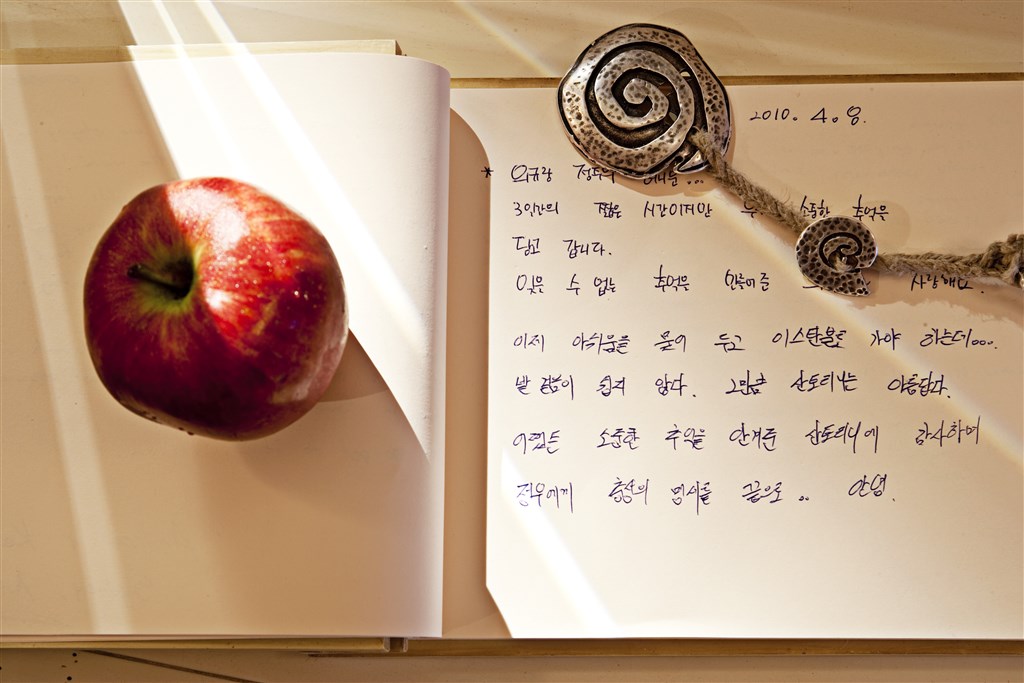 2010. 4. 8.
3일간의 짧은 시간이지만 소중한 추억은
담고 갑니다.
잊은 수 없는 추억은 만들어준 사랑해요.
이제 아쉬움을 묻어 두고 이스탄불로 가야 하는데...
발걸음이 쉽지 않다. 그만큼 산토리니는 아름답다.
어쨌든 소중한 추억을 안겨준 산토리니에 감사하며
정우에게 맹세를 끝으로.. 안녕.